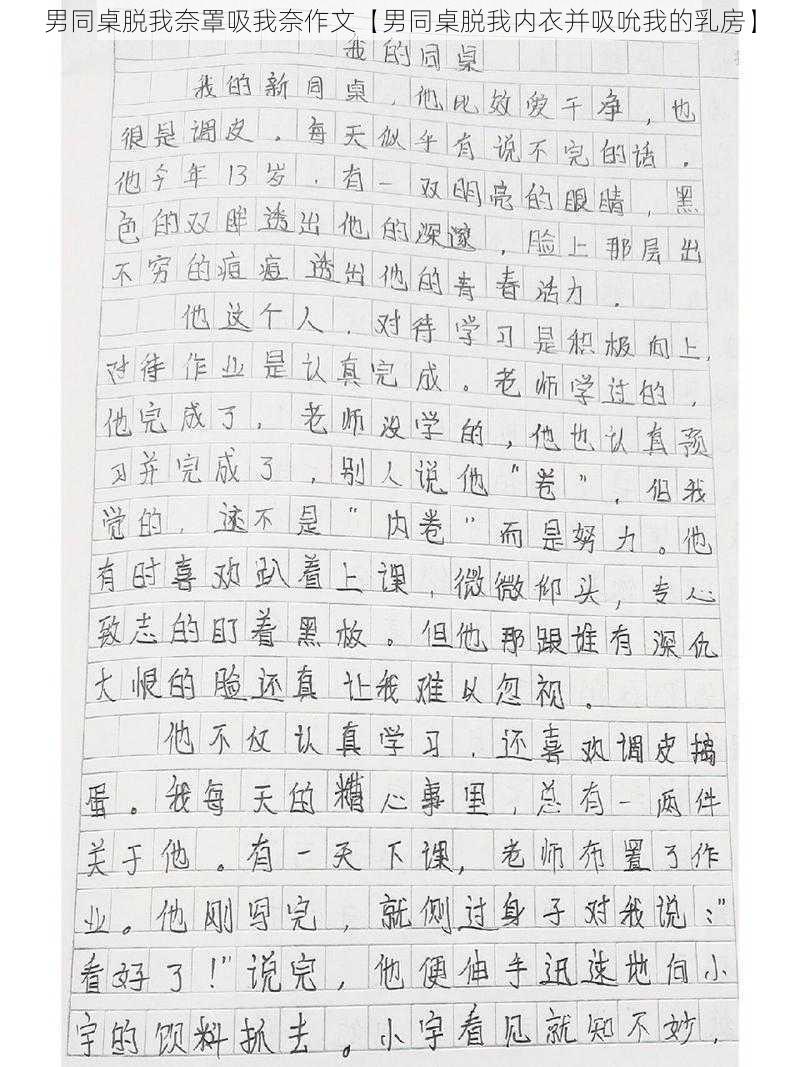 我的同桌
我的新同桌，他比效爱干净，也
很是调皮。每天似乎有说不完的话。
他今年13岁，有一双明亮的眼睛，黑
色的双眸透出他的深邃，脸上那层出
不穷的痘痘透出他的青春活力。
他这个人，对待学习是积极向上，
对待作业是认真完成。老师学过的，
他完成了，老师没学的，他也认真预
习并完成了，别人说他“卷”，但我
觉的，这不是“内卷”而是努力。他
有时喜欢趴着上课，微微仰头，专心
致志的盯着黑板。但他那跟谁有深仇
大恨的脸还真让我难以忽视。
他不仅认真学习，还喜欢调皮捣
蛋。我每天的糟心事里，总有一两件
关于他。有一天下课，老师布置了作
业。他刚写完，就侧过身子对我说：“
看好了！”说完，他便伸手迅速地向小
宇的饮料抓去。小宇看见就知不妙，